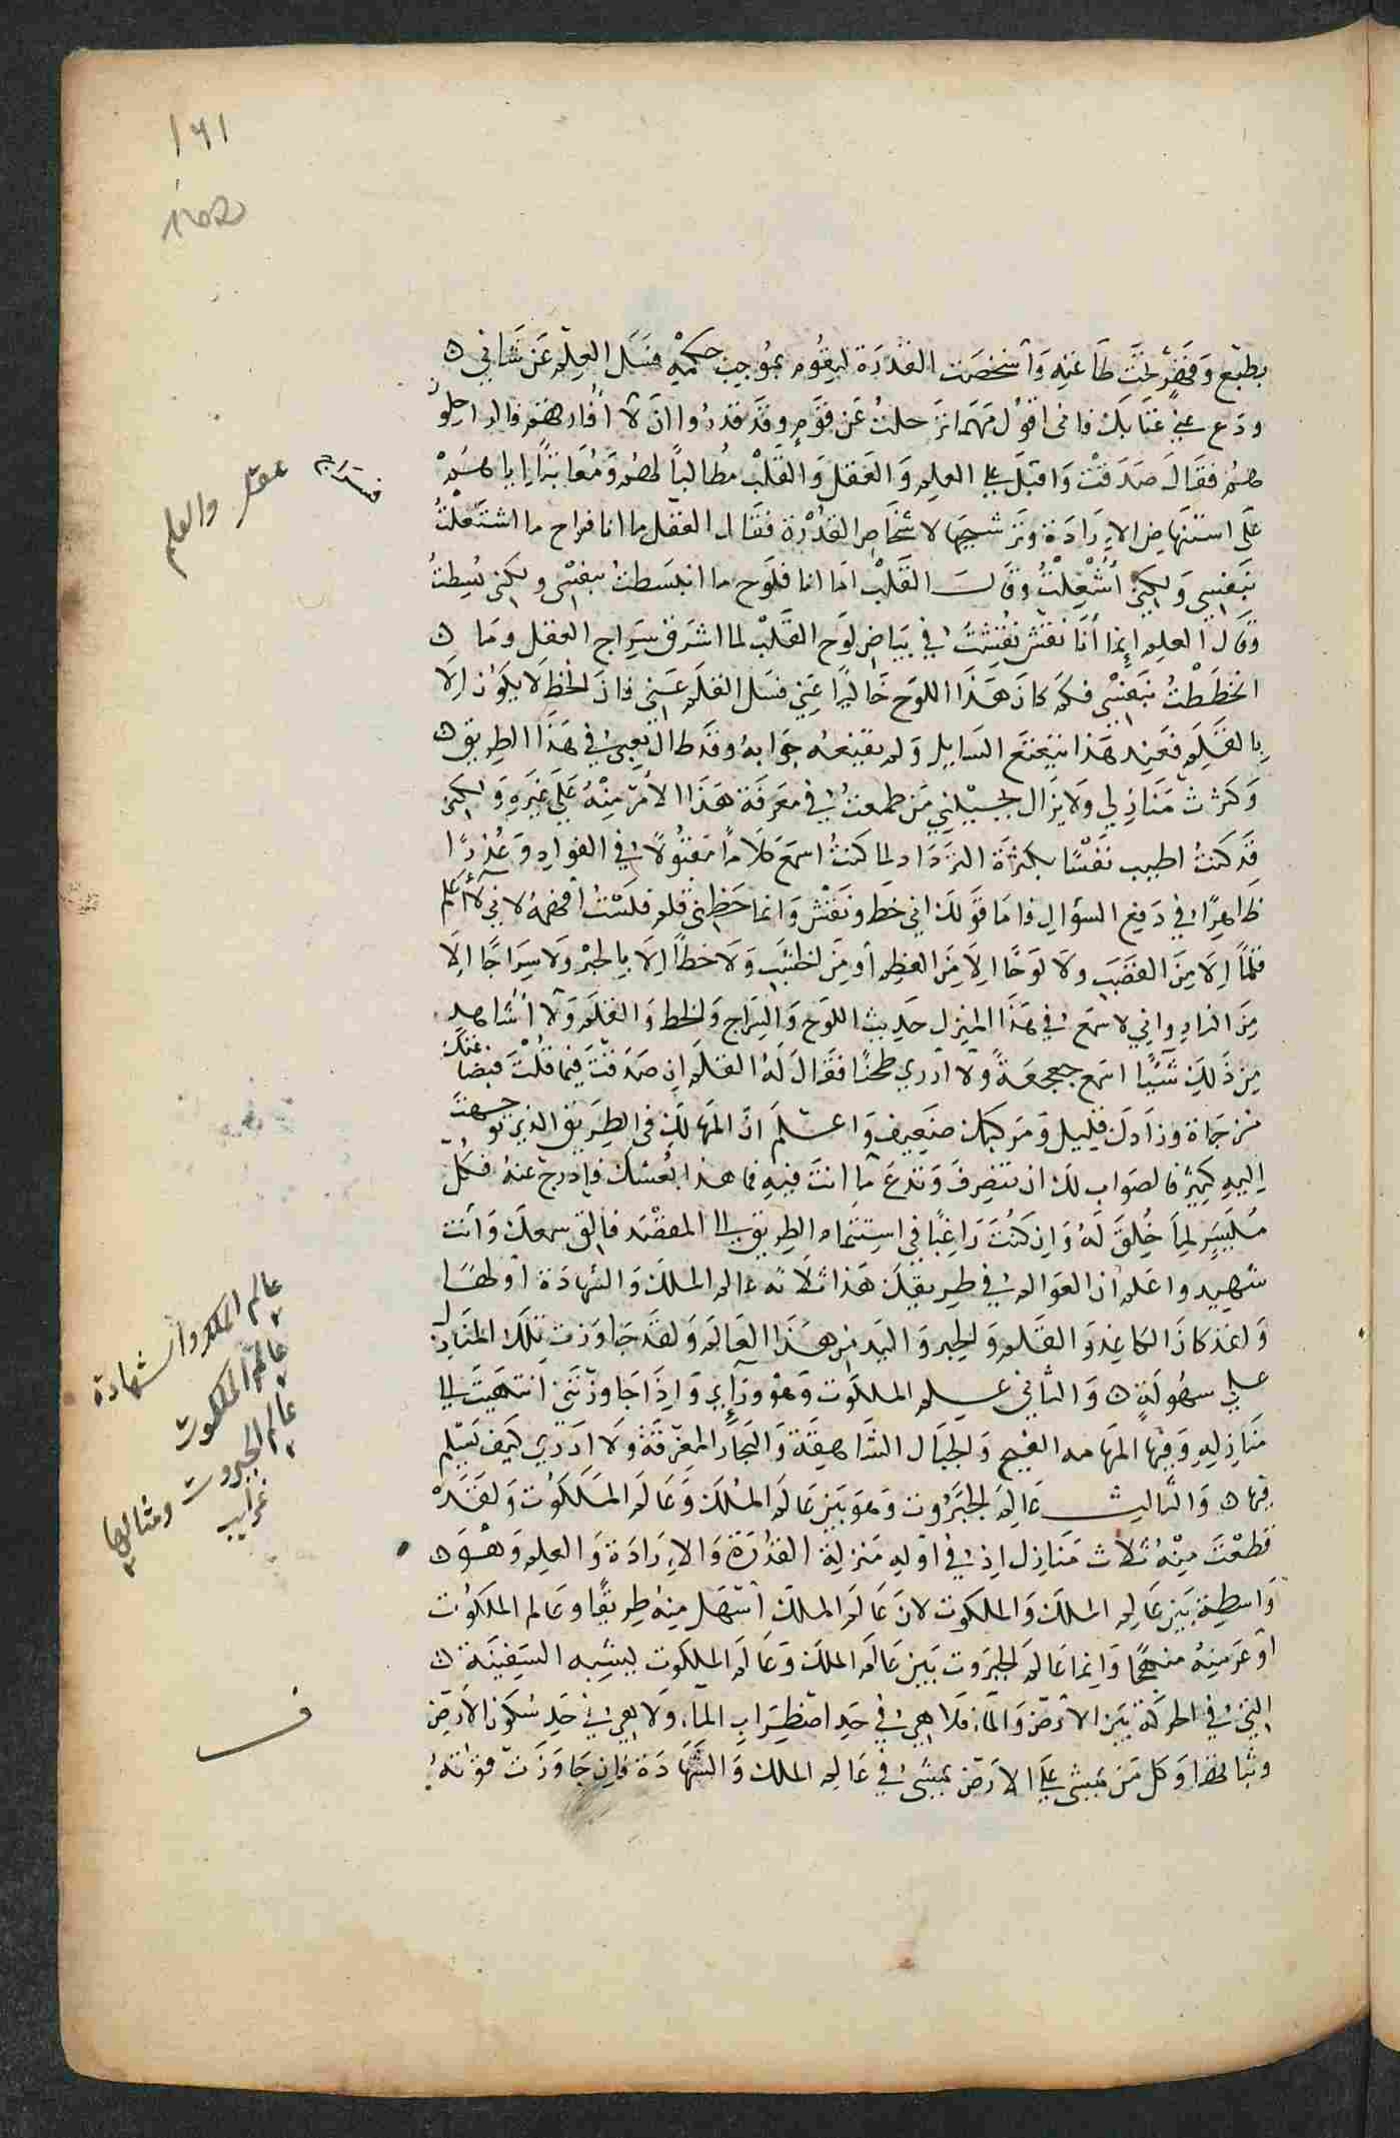 ١٦١
بطبع وقهر تحت طاعته وأشخصت القدرة ليقوم بموجب حكمه فسل العلم عن شاني ه
ودع عني عتابك فاني اقول مهما ترحلت عن قوم وقد قدروا ان لا تفارقهم فالراحلون
هم فقال صدقت واقبل على العلم والعقل والقلب مطالبا لهم ومعاتبا اياهم
على استنهاض الارادة وترشيحها لاشخاص القدرة فقال العقل ما انا فسراج ما اشتعلت
بنفسي ولكني أشعلت وقال القلب اما انا فلوح ما انبسطت بنفسي ولكني بسطت
وقال العلم إنما أنا نقش نقشت في بياض لوح القلب لما اشرق سراج العقل وما ه
انخططت بنفسي فكم كان هذا اللوح خاليا عني فسل القلم عني فان الخط لا يكون الا
بالقلم فعند هذا تتعتع السايل ولم يقنعه جوابه وقد طال تعبي في هذا الطريق ه
وكثرت منازلي ولا يزال يحيلني من طمعت في معرفة هذا الامر منه على غيره ولكني
قد كنت اطيب نفسا بكثرة الترداد لما كنت اسمع كلاما مقبولا في الفواد وعذرا
ظاهرا في دفع السؤال فاما قولك اني خط ونقش وانما خطني قلم فلست أفهمه لاني لا أعلم
قلما الا من القصب ولا لوحا الا من العظم أو من الخشب ولا خطا الا بالحبر ولا سراجا الا
من النار واني لاسمع في هذا المنزل حديث اللوح والسراج والخط والقلم ولا أشاهد
من ذلك شيئا اسمع جعجعة ولا أرى طحنا فقال له القلم ان صدقت فيما قلت فبضاعتك
مزجاة وزادك قليل ومركبك ضعيف واعلم ان المهالك في الطريق الذي توجهت
اليه كثيرة فالصواب لك ان تنصرف وتدع ما انت فيه فما هذا بعشك فادرج عنه فكل
ميسر لما خلق له وان كنت راغبا في استتمام الطريق الى المقصد فالق سمعك وانت
شهيد واعلم ان العوالم في طريقك هذا ثلاثة عالم الملك والشهادة أولها
ولقد كان الكاغد والقلم والحبر واليد من هذا العالم ولقد جاوزت تلك المنازل
على سهولة ه والثاني عالم الملكوت وهو ورآي واذا جاوزتني انتهيت الى
منازله وفيها المهامه الفيح والجبال الشاهقة والبحار المغرقة ولا ادري كيف تسلم
فيها ه والثالث عالم الجبروت وهو بين عالم الملك وعالم الملكوت ولقد
قطعت منه ثلاث منازل اذ في اوله منزلة القدرة والارادة والعلم وهو ه
واسطة بين عالم الملك والملكوت لان عالم الملك أسهل منه طريقا وعالم الملكوت
أوعر منه منهجا وانما عالم الجبروت بين عالم الملك وعالم الملكوت يشبه السفينة ه
التي في الحركة بين الارض والمآء فلا هي في حد اضطراب المآء ولا هي في حد سكون الارض
وثباتها وكل من يمشي على الارض يمشي في عالم الملك والشهادة فان جاوزت قوته
عقل والعلم
عالم الملك والشهادة
عالم الملكوت
عالم الجبروت ومثالها
غرايب
ف